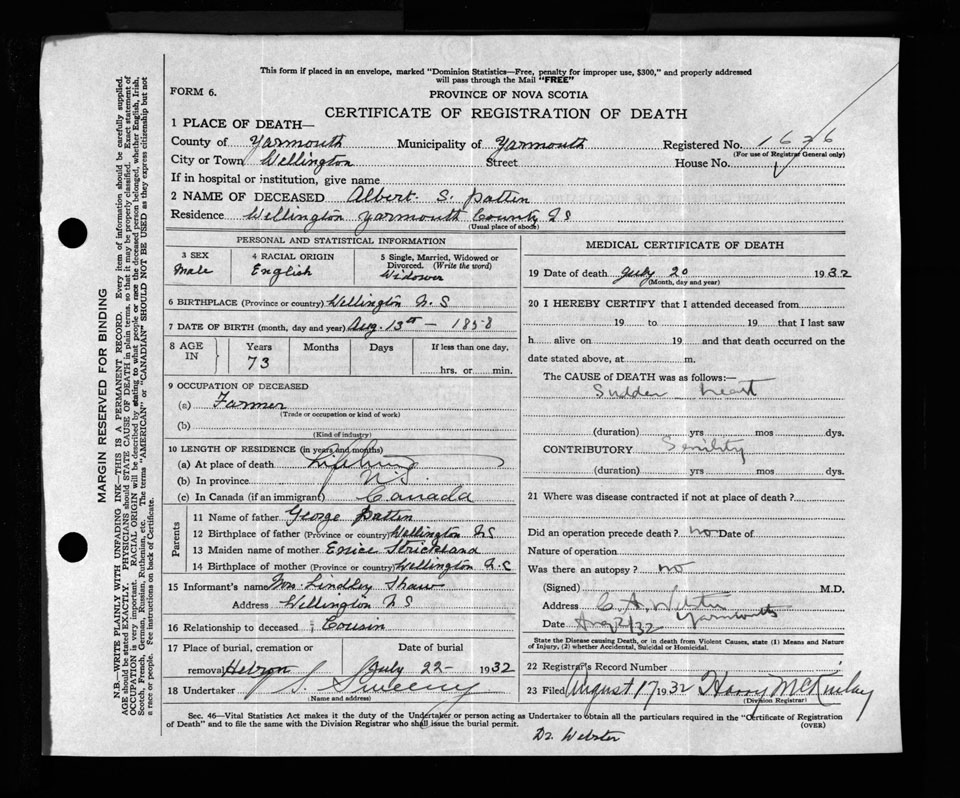 This form if placed in an envelope, marked "Dominion Statistics—Free, penalty for improper use, $300," and properly addressed
will pass through the Mail "FREE"
FORM 6.
PROVINCE OF NOVA SCOTIA
CERTIFICATE OF REGISTRATION OF DEATH
1 PLACE OF DEATH—
County of Yarmouth Municipality of Yarmouth Registered No. 1626
(For use of Registrar General only)
City or Town Wellington Street House No.
If in hospital or institution, give name
2 NAME OF DECEASED Albert S. Patten
Residence Wellington Yarmouth County N S
(Usual place of abode)
PERSONAL AND STATISTICAL INFORMATION
3 SEX 4 RACIAL ORIGIN 5 Single, Married, Widowed or
Divorced. (Write the word)
Male English Widower
6 BIRTHPLACE (Province or country) Wellington N. S
7 DATE OF BIRTH (month, day and year) Aug. 13th — 1858
8 AGE IN Years Months Days If less than one day.
73 hrs. or min.
9 OCCUPATION OF DECEASED
(a) Farmer
(Trade or occupation or kind of work)
(b)
(Kind of industry)
10 LENGTH OF RESIDENCE (in years and months)
(a) At place of death Lifetime
(b) In province N S
(c) In Canada (if an immigrant) Canada
Parents
11 Name of father George Patten
12 Birthplace of father (Province or country) Wellington N S
13 Maiden name of mother Enice Strickland
14 Birthplace of mother (Province or country) Wellington N. S
15 Informant's name Mrs. Lindley Shaw
Address Wellington N S
16 Relationship to deceased Cousin
17 Place of burial, cremation or Date of burial
removal Hebron July 22- 1932
18 Undertaker Sweeny
(Name and address)
MEDICAL CERTIFICATE OF DEATH
19 Date of death July 20 1932
(Month, day and year)
20 I HEREBY CERTIFY that I attended deceased from
19 to 19 that I last saw
h alive on 19 and that death occurred on the
date stated above, at m.
The CAUSE of DEATH was as follows:—
Sudden heart
(duration) yrs mos dys.
CONTRIBUTORY Senility
(duration) yrs mos dys.
21 Where was disease contracted if not at place of death?
Did an operation precede death? no Date of
Nature of operation
Was there an autopsy? no
(Signed) M.D.
Address C. A. Webster
Date Aug 2/32 Yarmouth
State the Disease causing Death, or in death from Violent Causes, state (1) Means and Nature
of Injury, (2) whether Accidental, Suicidal or Homicidal.
22 Registrar's Record Number
23 Filed August 17 1932 Harry McKinlay
(Division Registrar)
Sec. 46—Vital Statistics Act makes it the duty of the Undertaker or person acting as Undertaker to obtain all the particulars required in the "Certificate of Registration
of Death" and to file the same with the Division Registrar who shall issue the burial permit.
(OVER)
Dr. Webster
MARGIN RESERVED FOR BINDING
N.B.—WRITE PLAINLY WITH UNFADING INK—THIS IS A PERMANENT RECORD. Every item of information should be carefully supplied.
AGE should be stated EXACTLY. PHYSICIANS should STATE CAUSE OF DEATH in plain terms, so that it may be properly classified. Exact statement of
OCCUPATION is very important. RACIAL ORIGIN will be described by stating to what people or race the deceased person belonged, whether English, Irish,
Scotch, French, German, Russian, Ruthenian, etc. The terms "AMERICAN" or "CANADIAN" SHOULD NOT BE USED as they express citizenship but not
a race or people. Fee instructions on back of Certificate.